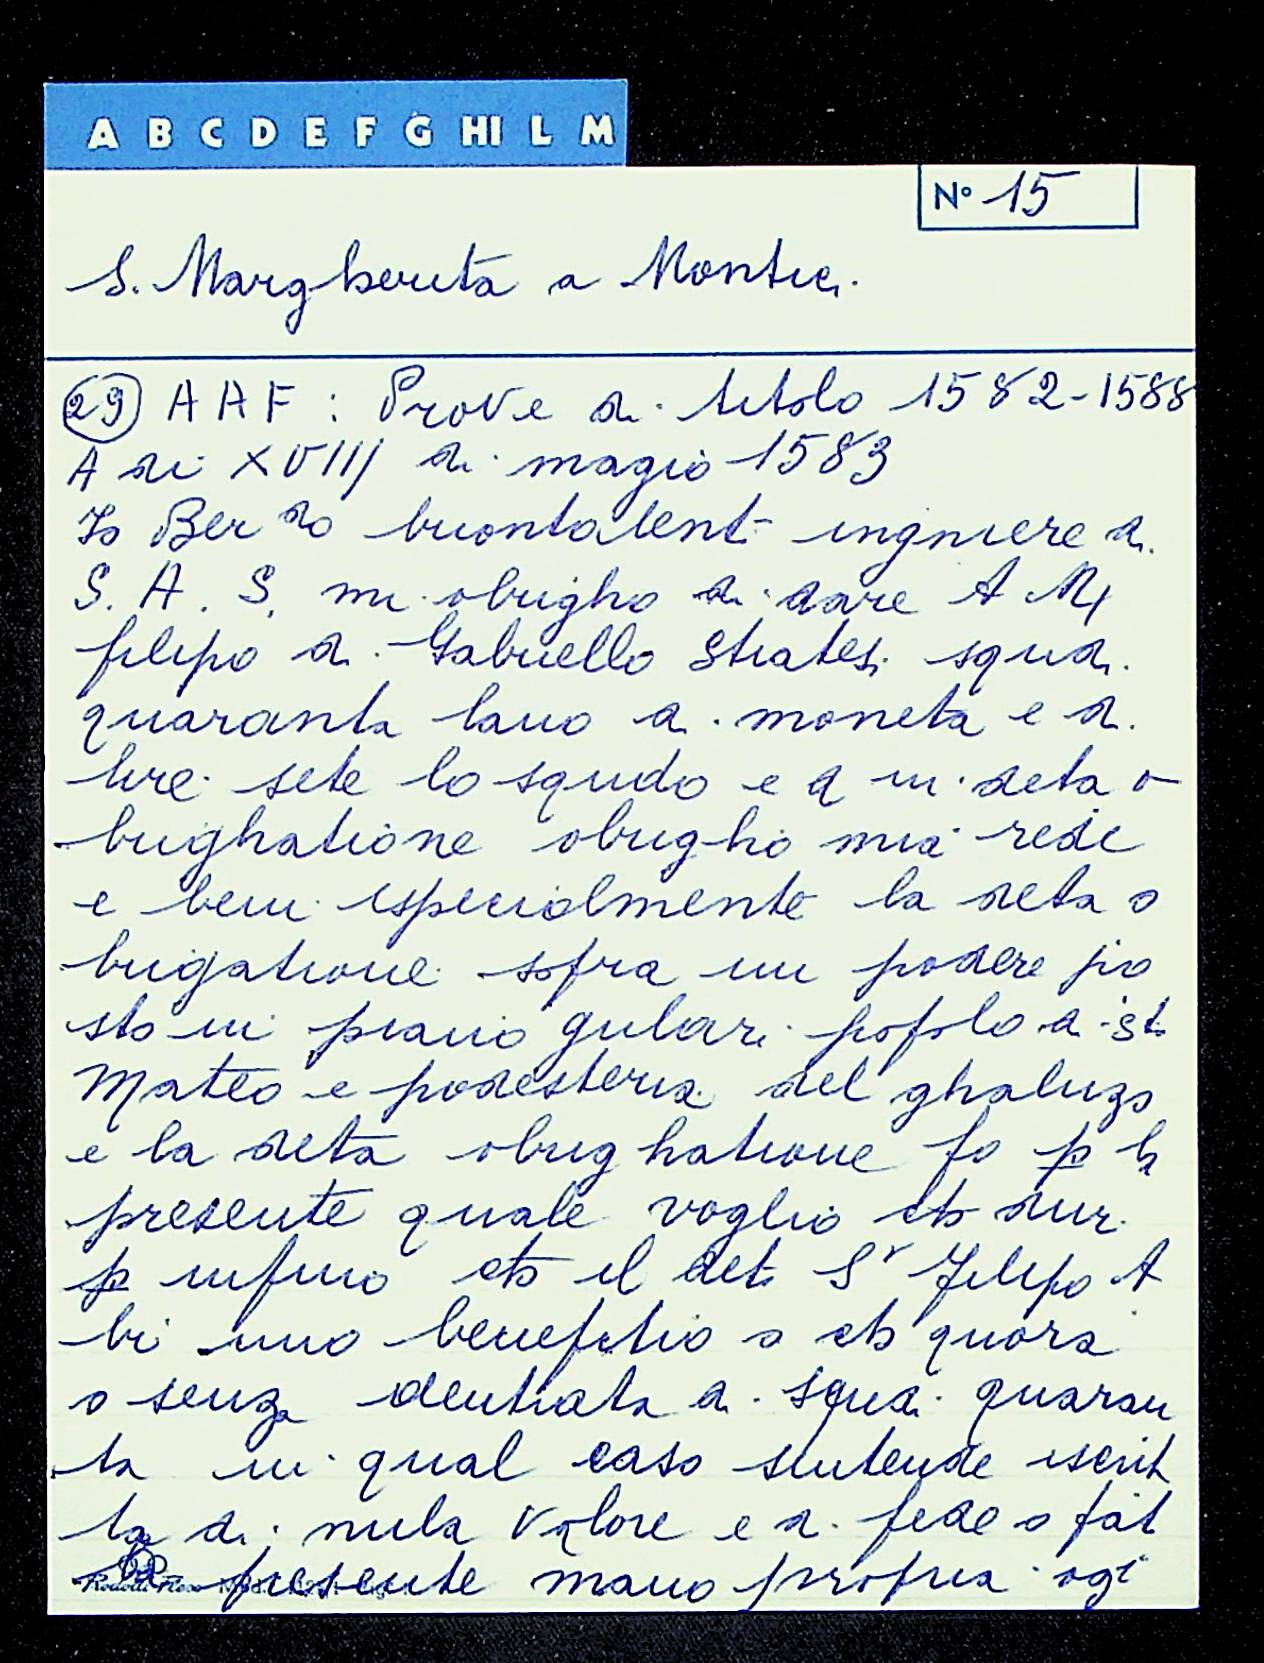 A B C D E F G HI L M
N° 15
S. Margherita a Montici.
29 A A F : Prove di titolo 1582-1588
A di XVIIJ di magio 1583
Io Ber do buontalenti ingniere di
S. A. S. mi obrigho di dare A
filipo di Gabriello Strates. squdi
quaranta luno di moneta e di
lire sete lo squdo e q in deta o
brighatione obrigho mia rede
e beni especialmente la deta o
brigatione sofra un podere po
sto in piano gulari popolo di st
Mateo e podesteria del ghaluzo
e la deta obrighatione fo p la
presente quale voglio ch duri
p infino ch il deto Sr Filipo A
bi uno benefitio o ch quora
o senza dentrata di squdi quaran
ta in qual caso sintende iscrit
ta di nula valore e di fede o fat
la presente mano propria ogi